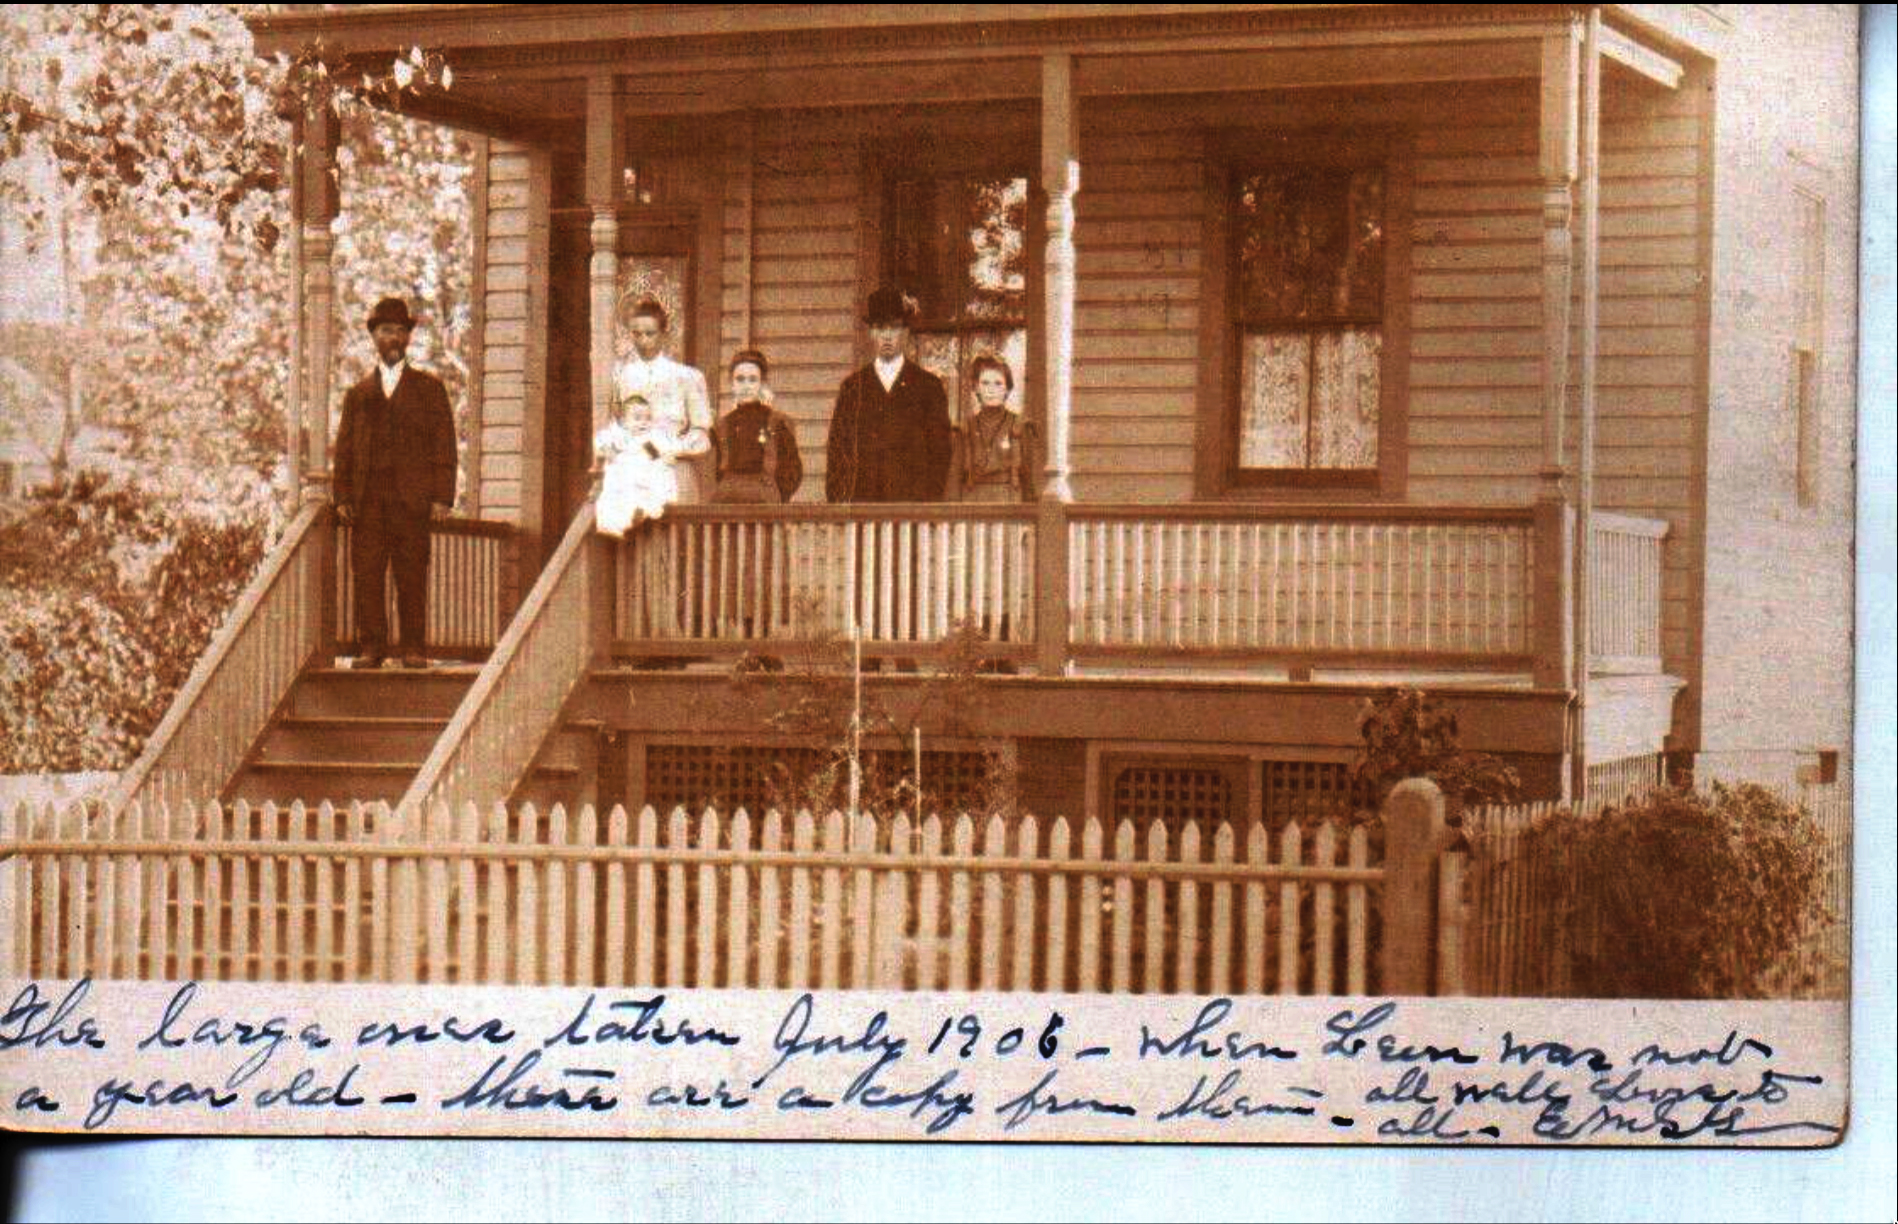 The large ones taken July 1906 - when Leon was not
a year old - these are a copy from them - all well Love to
all -